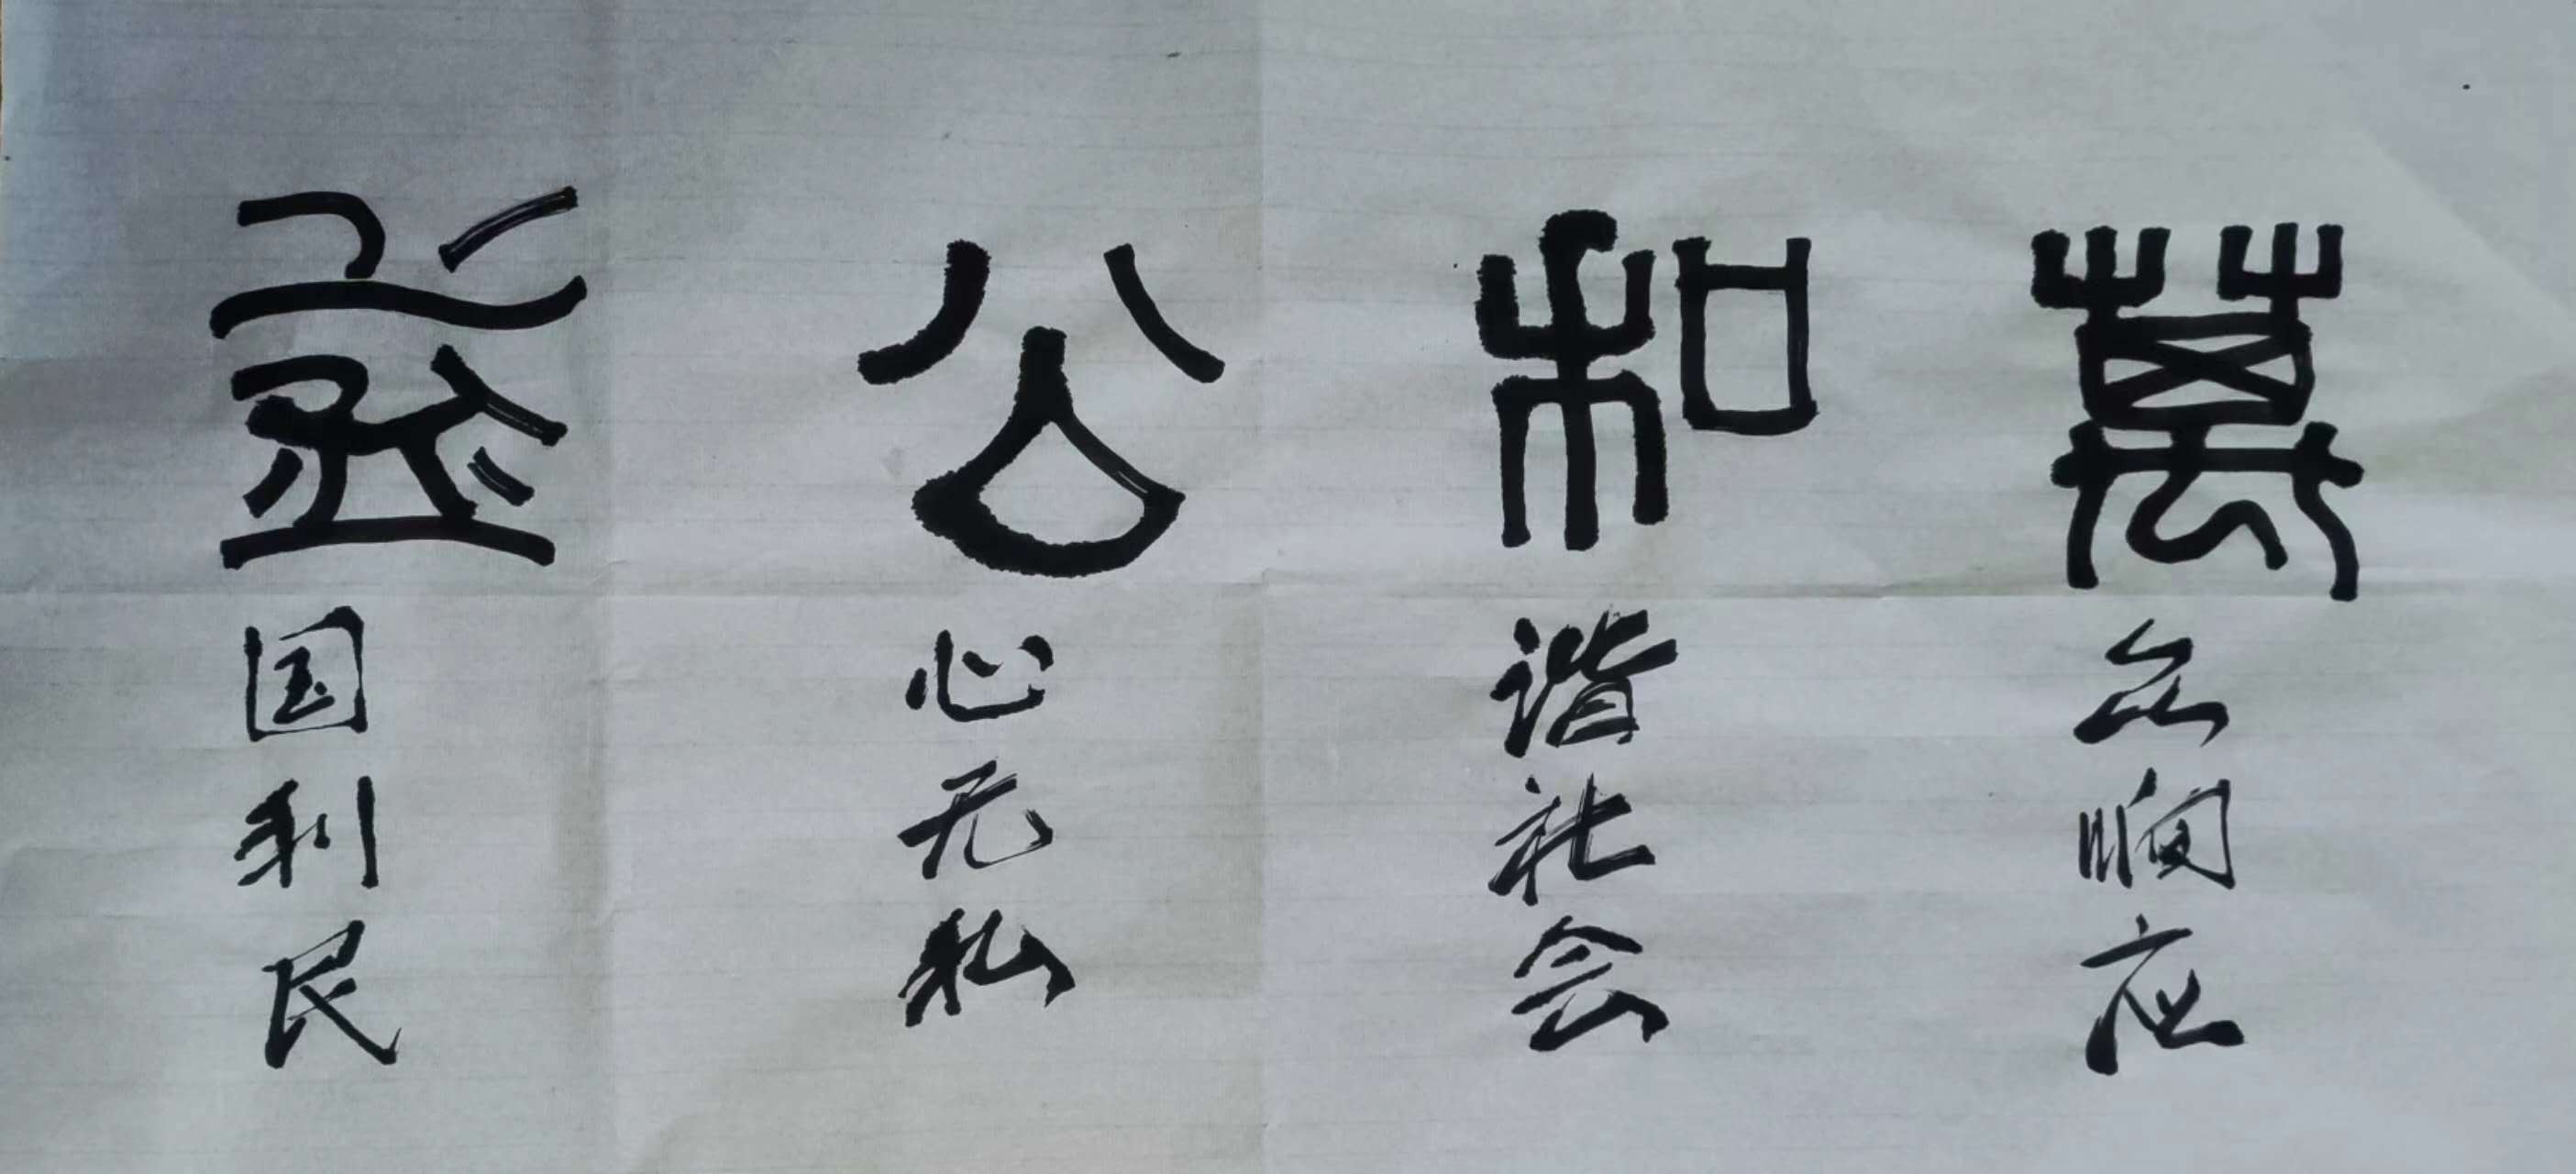 萬应
和谐社会
公心无私
益国利民